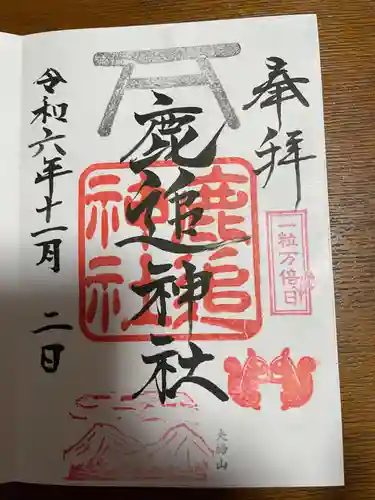 奉拝
一粒万倍日
鹿追神社
鹿追神社
夫婦山
令和六年十一月二日